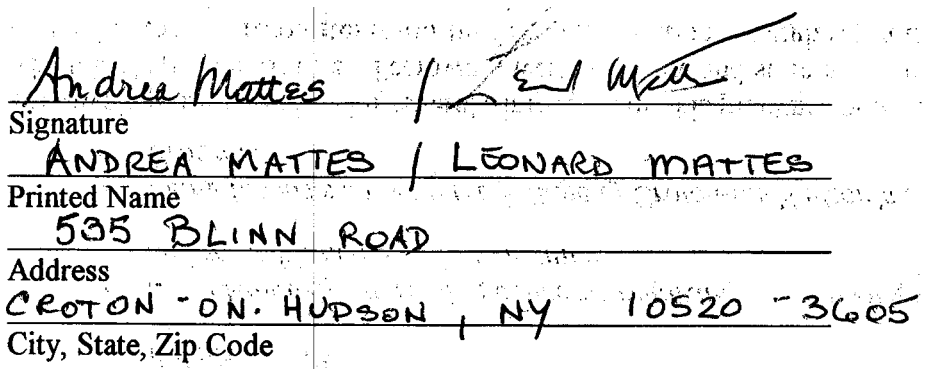 Andrea Mattes / Leonard Mattes
Signature
ANDREA MATTES / LEONARD MATTES
Printed Name
535 BLINN ROAD
Address
CROTON-ON-HUDSON, NY 10520-3605
City, State, Zip Code